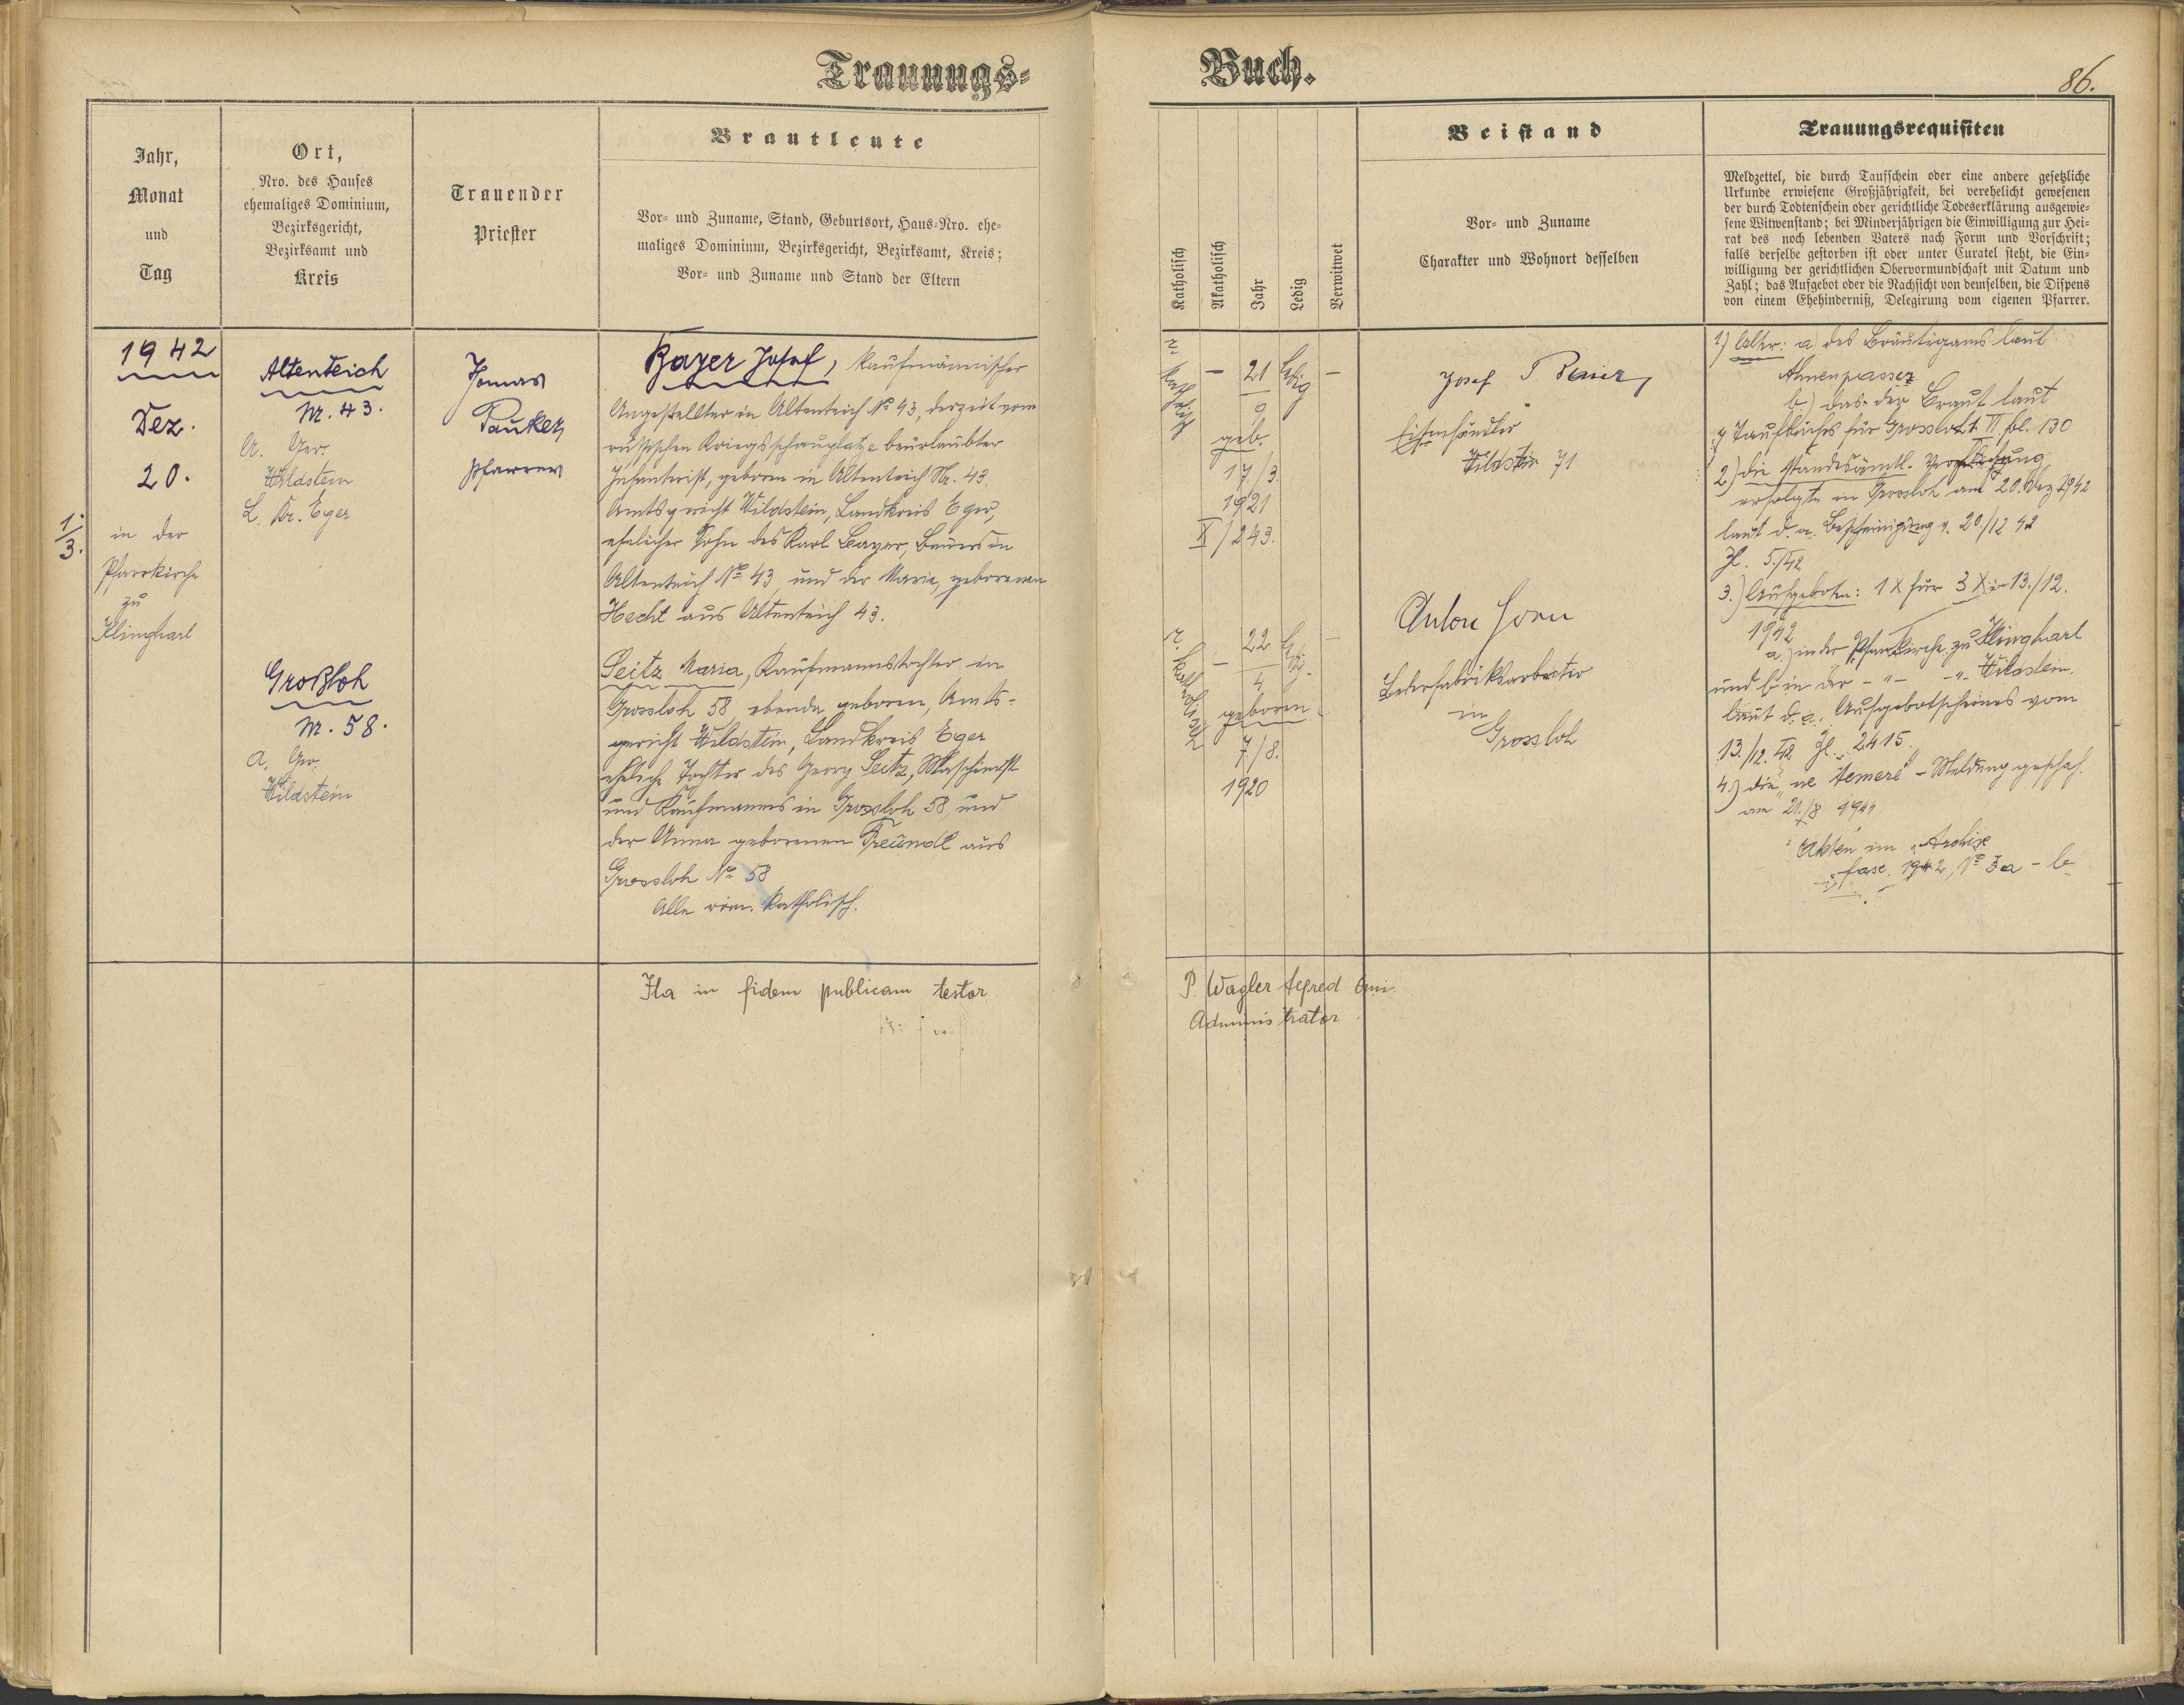 Trauungs-
Buch.
86.
Jahr,
Monat
und
Tag
Ort,
Nro. des Hauses
ehemaliges Dominium,
Bezirksgericht,
Bezirksamt und
Kreis
Trauender
Priester
Brautleute
Vor- und Zuname, Stand, Geburtsort, Haus-Nro. ehe-
maliges Dominium, Bezirksgericht, Bezirksamt, Kreis;
Vor- und Zuname und Stand der Eltern
Katholisch
Akatholisch
Jahr
Ledig
Verwitwet
Beistand
Vor- und Zuname
Charakter und Wohnort desselben
Trauungsrequisiten
Meldzettel, die durch Taufschein oder eine andere gesetzliche
Urkunde erwiesene Großjährigkeit, bei verehelicht gewesenen
der durch Todtenschein oder gerichtliche Todeserklärung ausgewie-
sene Witwenstand; bei Minderjährigen die Einwilligung zur Hei-
rat des noch lebenden Vaters nach Form und Vorschrift;
falls derselbe gestorben ist oder unter Curatel steht, die Ein-
willigung der gerichtlichen Obervormundschaft mit Datum und
Zahl; das Aufgebot oder die Nachsicht von demselben, die Dispens
von einem Ehehinderniß, Delegirung vom eigenen Pfarrer.
1942
Dez.
20.
1.
3.
in der
Pfarrkirche
zu
Klinghart
Altenteich
Nr. 43.
A. Ger.
Wildstein
L. Kr. Eger
Großloh
Nr. 58.
A. Ger.
Wildstein
Tomas
Pauker
Pfarrer
Bayer Josef, kaufmännischer
Angestellter in Altenteich No 43, derzeit vom
russischen Kriegsschauplatze beurlaubter
Infanterist, geboren in Altenteich Nr. 43,
Amtsgericht Wildstein, Landkreis Eger,
ehelicher Sohn des Karl Bayer, Bauers in
Altenteich No 43, und der Marie, geborenen
Hecht aus Altenteich 43.
Seitz Maria, Kaufmannstochter in
Grossloh 58, ebenda geboren, Amts-
gericht Wildstein, Landkreis Eger
eheliche Tochter des Georg Seitz, Maschinist
und Kaufmanns in Grossloh 58, und
der Anna geborenen Freundl aus
Grossloh No 58
Alle röm. katholisch.
Ita in fidem publicam testor
r. katholisch
– 21 ledig –
9
geb.
17./3.
1921
X/243.
r. katholisch
– 22 ledig –
4
geboren
7/8.
1920
Josef
Eisenhändler
Wildstein 71
Anton
Lederfabriksarbeiter
in
Grossloh
P. Wagler Alfred
Administrator
1) Alter: a des Bräutigams laut
Ahnenpasses
b) das der Braut laut
Taufbuches für Grossloh t. VI fol. 130
2) die standesämtl.
erfolgte in Grossloh am 20. Dez 1942
laut d. a. Bescheinigung v. 20./12 42
Zl. 5./42
3.) Aufgeboten: 1 X für 3 X: 13./12.
1942
a.) in der Pfarrkirche zu Klinghart
und b in der – " – – " – Wildstein.
laut d. a. Aufgebotscheines vom
13./12. 42 Zl. 2415.
4.) die "ne temere" – Meldung geschah
am 21./8 1944
Akten im Archive
fasc. 1942, No 3a – b